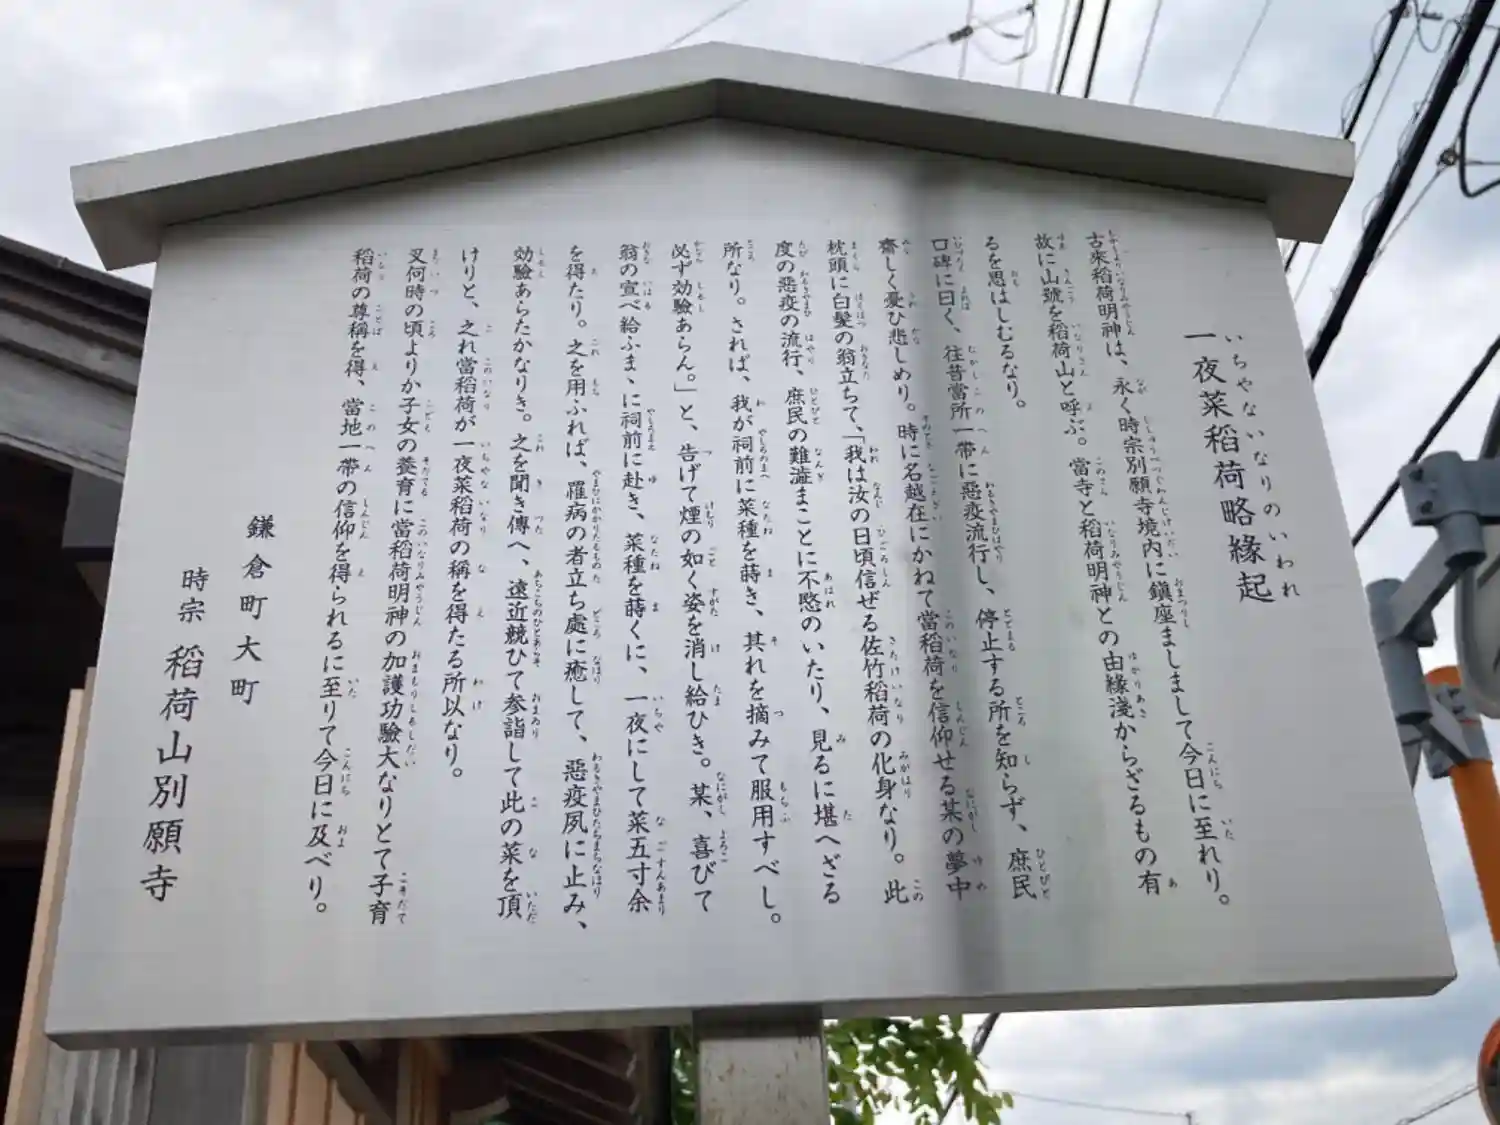 一夜菜稲荷略縁起
いちやないなりのいわれ
古来稲荷明神は、永く時宗別願寺境内に鎮座ましまして今日に至れり。
故に山號を稲荷山と呼ぶ。當寺と稲荷明神との由縁淺からざるもの有
るを思はしむるなり。
口碑に曰く、往昔當所一帯に惡疫流行し、停止する所を知らず、庶民
齋しく憂ひ悲しめり。時に名越在にかねて當稲荷を信仰せる某の夢中
枕頭に白髪の翁立ちて、「我は汝の日頃信ぜる佐竹稲荷の化身なり。此
度の惡疫の流行、庶民の難澁まことに不愍のいたり、見るに堪へざる
所なり。されば、我が祠前に菜種を蒔き、其れを摘みて服用すべし。
必ず効驗あらん。」と、告げて煙の如く姿を消し給ひき。某、喜びて
翁の宣べ給ふまゝに祠前に赴き、菜種を蒔くに、一夜にして菜五寸余
を得たり。之を用ふれば、罹病の者立ち處に癒して、惡疫夙に止み、
効驗あらたかなりき。之を聞き傳へ、遠近競ひて参詣して此の菜を頂
けりと、之れ當稲荷が一夜菜稲荷の稱を得たる所以なり。
又何時の頃よりか子女の養育に當稲荷明神の加護功驗大なりとて子育
稲荷の尊稱を得、當地一帯の信仰を得られるに至りて今日に及べり。
鎌倉町大町
時宗 稲荷山別願寺